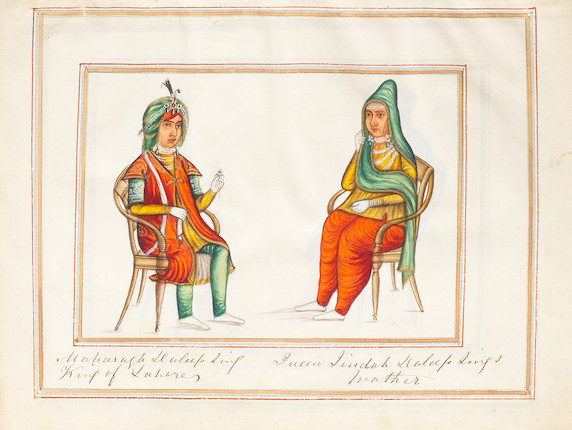 Maharajh Daleep Sing
King of Lahore
Queen Jindah Daleep Sing's
Mother